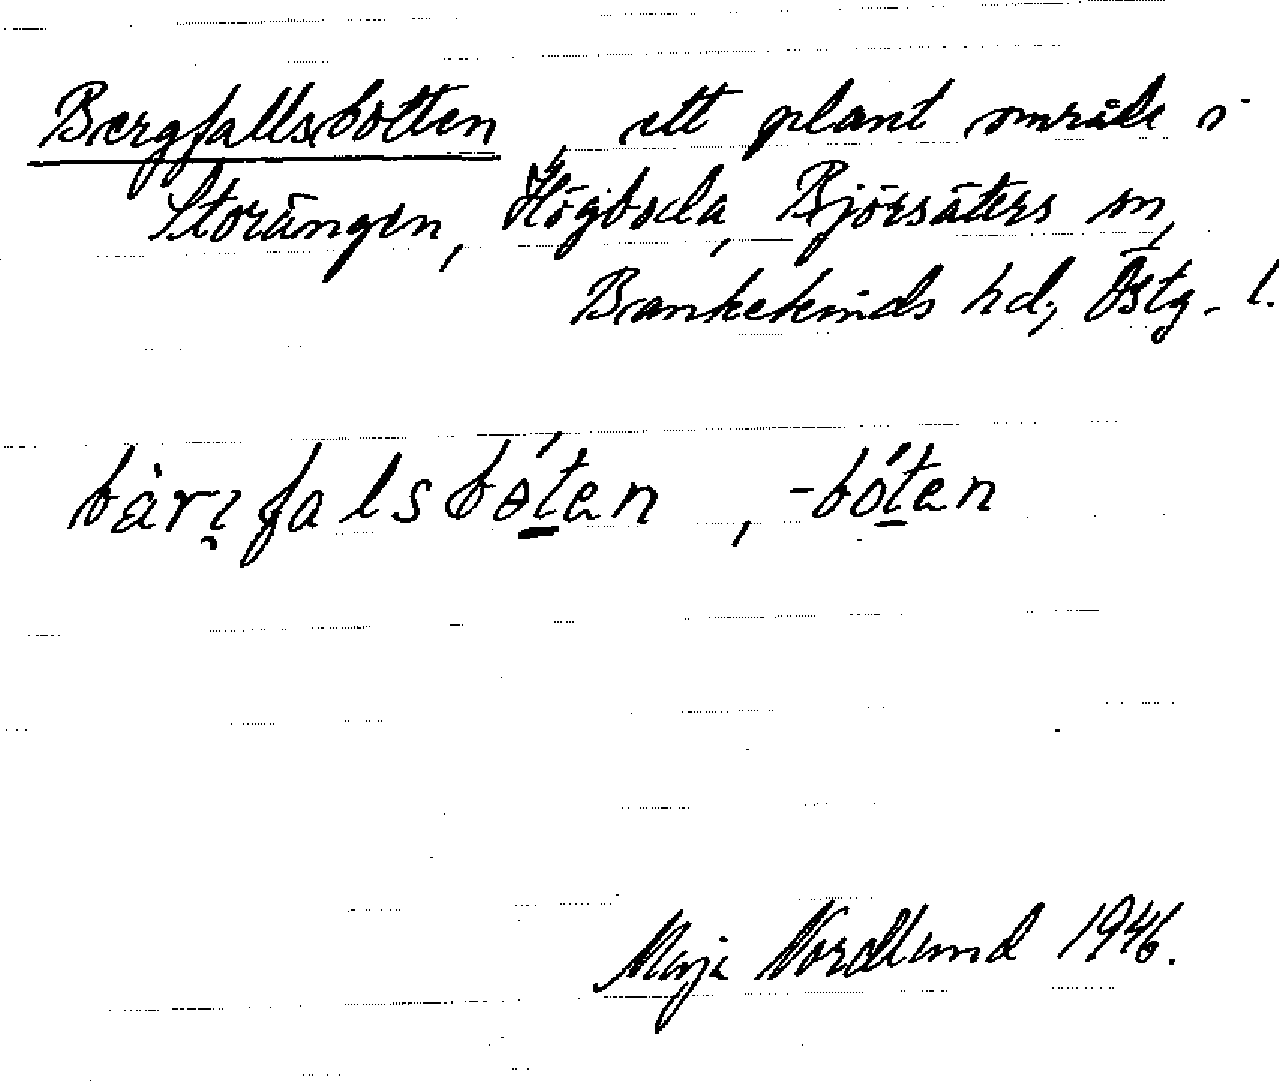 Bergfallsbotten ett plant område i
Storängen, Högboda, Björsäters sn,
Bankekinds hd, Östg. l.
bàrifalsbóten, -bóten
Maja Nordlund 1946.